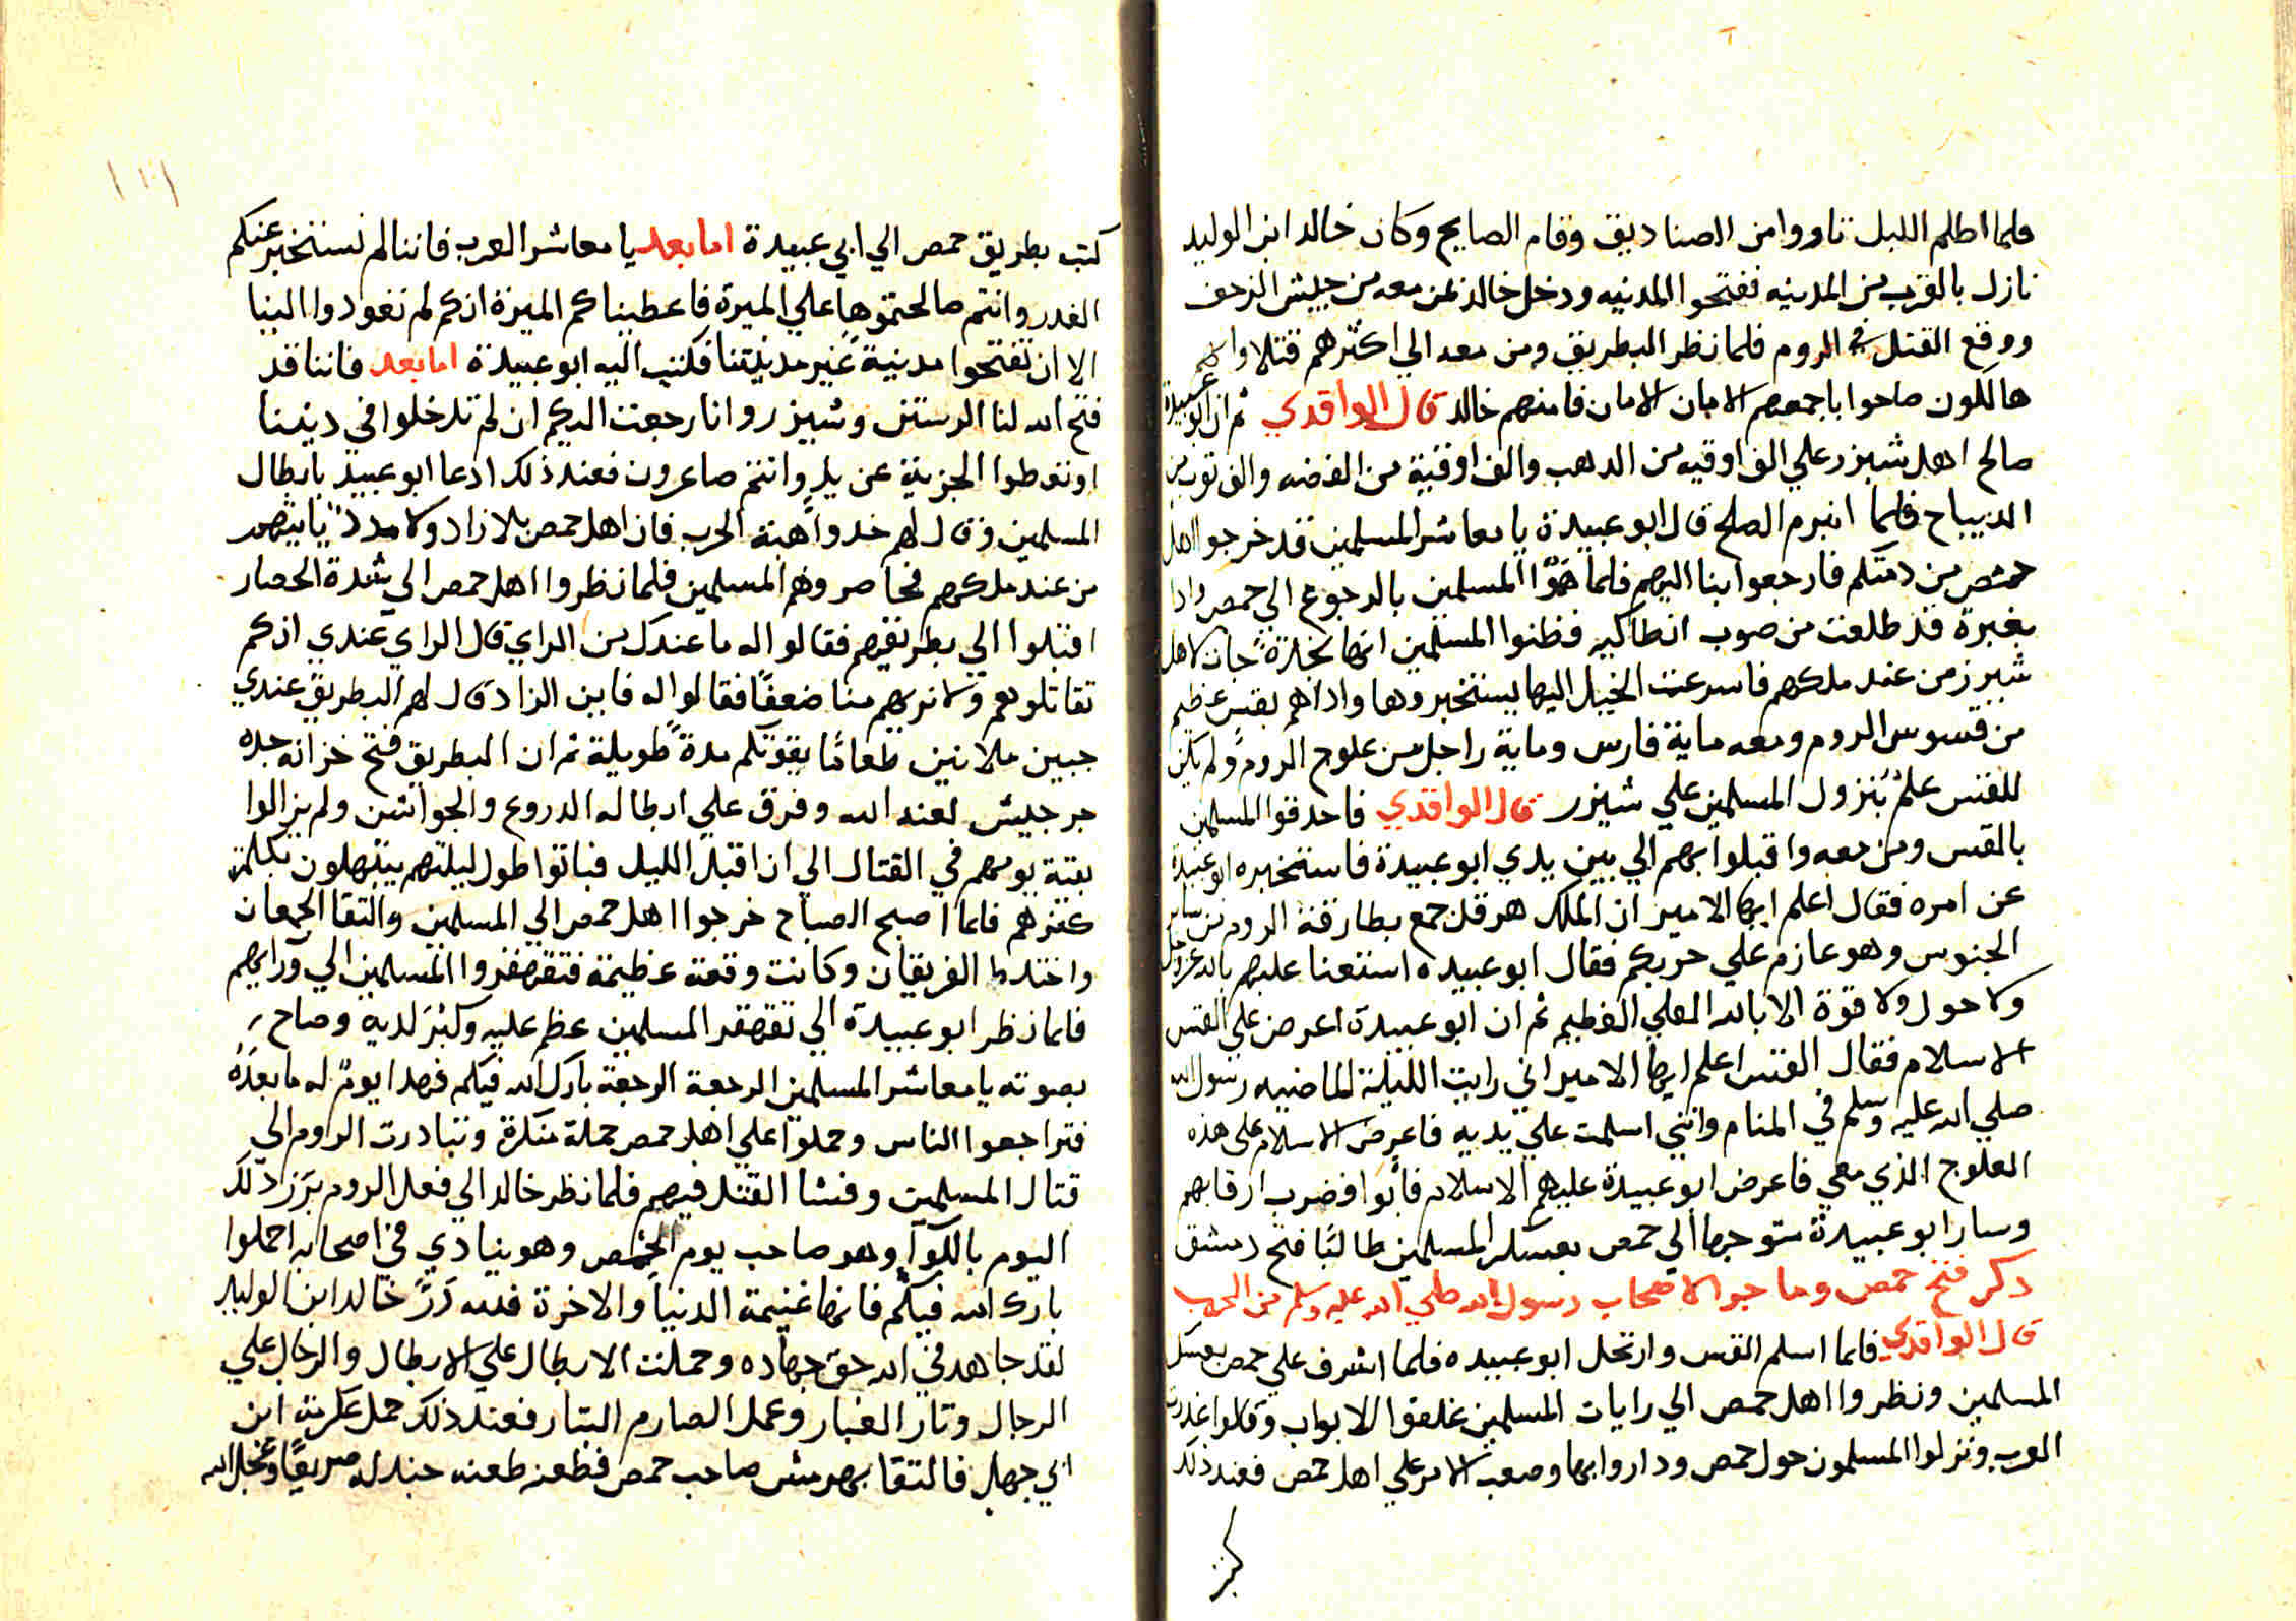 فلما اظلم الليل ثاروا من الصناديق وقام الصايح وكان خالد ابن الوليد
نازل بالقرب من المدينه ففتحوا المدينه ودخل خالد بمن معه من جيش الزحف
ووقع القتل في الروم فلما نظر البطريق ومن معه الي اكثرهم قتلا وانهم
هالكون صاحوا باجمعهم الامان الامان فامنهم خالد قال الواقدي ثم ان ابو عبيدة
صالح اهل شيزر علي الف اوقيه من الدهب والف اوقية من الفضه والف توب من
الديباج فلما انبرم الصلح قال ابو عبيدة يا معاشر المسلمين قد خرجوا اهل
حمص من دمتكم فارجعوا بنا اليهم فلما هموا المسلمين بالرجوع الي حمص وادا
بغبرة قد طلعت من صوب انطاكيه فظنوا المسلمين انها نجدة جات لاهل
شيرز من عند ملكهم فاسرعت الخيل اليها يستخبروها وادا هم بقس عظيم
من قسوس الروم ومعه ماية فارس وماية راجل من علوج الروم ولم يكن
للقس علم بنزول المسلمين علي شيزر قال الواقدي فاحدقوا المسلمين
بالقس ومن معه واقبلوا بهم الي بين يدي ابو عبيدة فاستخبره ابو عبيدة
عن امره فقال اعلم ايها الامير ان الملك هرقل جمع بطارقة الروم من ساير
الجنوس وهو عازم علي حربكم فقال ابو عبيده استعنا عليهم بالله عز وجل
ولا حول ولا قوة الا بالله العلي العظيم ثم ان ابو عبيدة اعرض علي القس
الاسلام فقال القس اعلم ايها الامير اني رايت الليلة الماضيه رسول الله
صلي الله عليه وسلم في المنام وانني اسلمت علي يديه فاعرض الاسلام علي هذه
العلوج الذي معي فاعرض ابو عبيدة عليهم الاسلام فابوا فضرب ارقابهم
وسار ابو عبيدة متوجها الي حمص بعسكر المسلمين طالبا فتح دمشق
دكر فتح حمص وما جرا لاصحاب رسول الله صلي الله عليه وسلم من الحرب
قال الواقدي فلما اسلم القس وارتحل ابو عبيده فلما اشرف علي حمص بعسكر
المسلمين ونظروا اهل حمص الي رايات المسلمين غلقوا الابواب وقالوا غدرت
العرب ونزلوا المسلمون حول حمص وداروا بها وصعب الامر علي اهل حمص فعند ذلك
كتب
١٠١
كتب بطريق حمص الي ابي عبيدة اما بعد يا معاشر العرب فاننا لم نستخبر عنكم
الغدر وانتم صالحتموها علي الميرة فاعطيناكم الميزة انكم لم تعودوا الينا
الا ان تفتحوا مدينة غير مدينتنا فكتب اليه ابو عبيدة اما بعد فاننا قد
فتح الله لنا الرستن وشيزر وانا رجعت اليكم ان لم تدخلوا في ديننا
او تعطوا الجزية عن يد وانتم صاغرون فعند ذلك ادعا ابو عبيد بابطال
المسلمين وقال لهم خدوا اهبة الحرب فان اهل حمص بلا زاد ولا مدد ياتيهم
من عند ملكهم فحاصروهم المسلمين فلما نظروا اهل حمص الي شدة الحصار
اقبلوا الي بطريقهم فقالوا له ما عندك من الراي قال الراي عندي انكم
تقاتلوهم ولا نريهم منا ضعفا فقالوا له فاين الزاد قال لهم البطريق عندي
جبين ملانين طعاما يقوتكم مدة طويلة ثم ان البطريق فتح خزانة جده
جرجيش لعنه الله وفرق علي ابطاله الدروع والجواشن ولم يزالوا
بقية يومهم في القتال الي ان اقبل الليل فباتوا طول ليلتهم يبتهلون بكلمة
كفرهم فلما اصبح الصباح خرجوا اهل حمص الي المسلمين والتقا الجمعان
واختلط الفريقان وكانت وقعة عظيمة فتقهقروا المسلمين الي ورايهم
فلما نظر ابو عبيدة الي تقهقر المسلمين عظم عليه وكبر لديه وصاح
بصوته يا معاشر المسلمين الرجعة الرجعة بارك الله فيكم فهدا يوم له ما بعده
فتراجعوا الناس وحملوا علي اهل حمص حملة منكرة وتبادرت الروم الي
قتال المسلمين وفشا القتل فيهم فلما نظر خالد الي فعل الروم برز ذلك
اليوم باللوآ وهو صاحب يوم حمص وهو ينادي في اصحابه احملوا
بارك الله فيكم فانها غنيمة الدنيا والاخرة فلله در خالد ابن الوليد
لقد جاهد في الله حق جهاده وحملت الابطال علي الابطال والرجال علي
الرجال وثار الغبار وعمل الصارم البتار فعند ذلك حمل عكرمة ابن
ابي جهل فالتقا بهرمش صاحب حمص فطعنه طعنه جندله صريعا وعجل الله